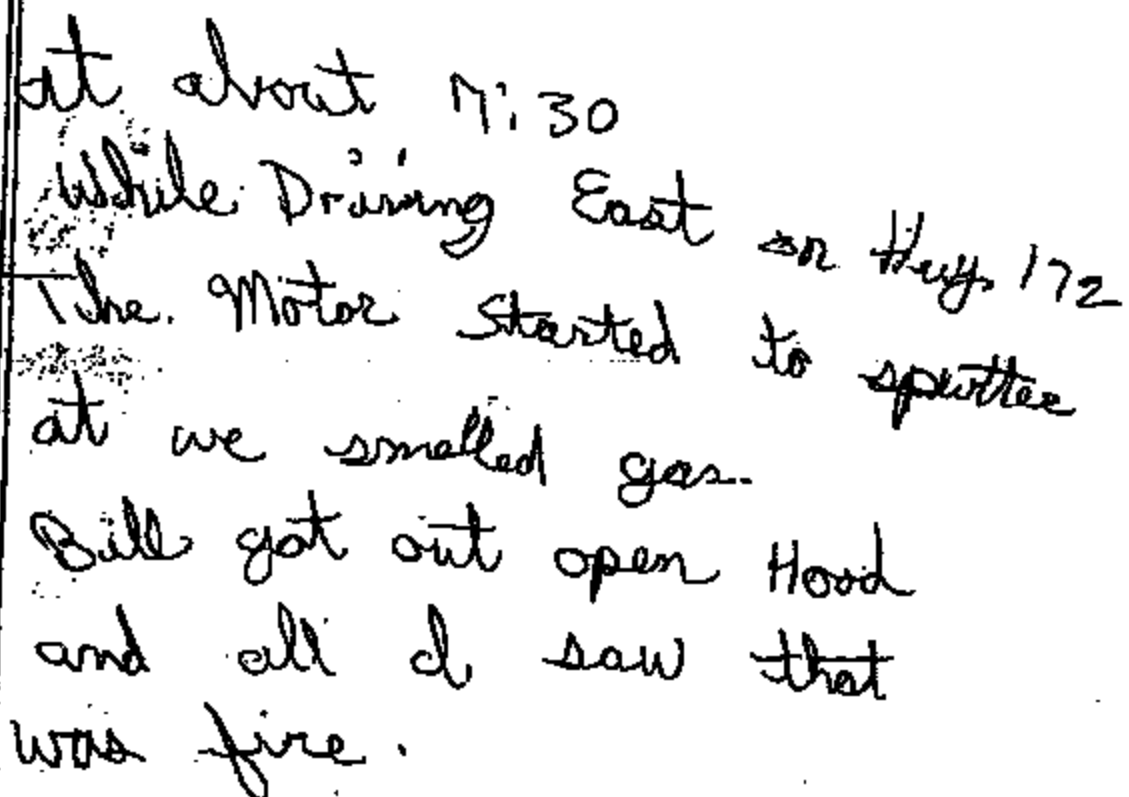 at about 7:30
While Driving East on Hwy. 172
The. Motor Started to sputter
at we smelled gas.
Bill got out open Hood
and all I saw that
was fire.